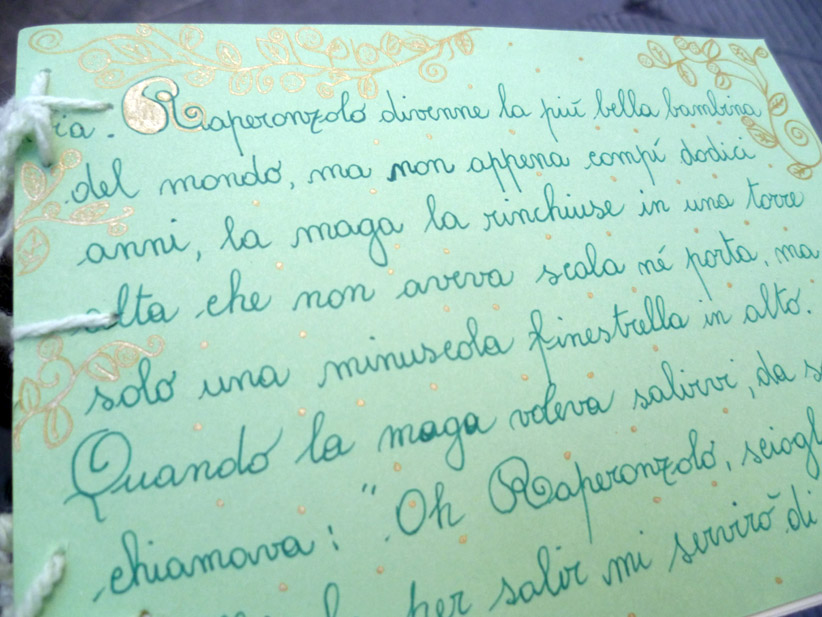 ia. Raperonzolo divenne la più bella bambina
del mondo, ma non appena compì dodici
anni, la maga la rinchiuse in una torre
alta che non aveva scala né porta, ma
solo una minuscola finestrella in alto.
Quando la maga voleva salirvi, da s
chiamava: "Oh Raperonzolo, sciogl
per salir mi servirò di